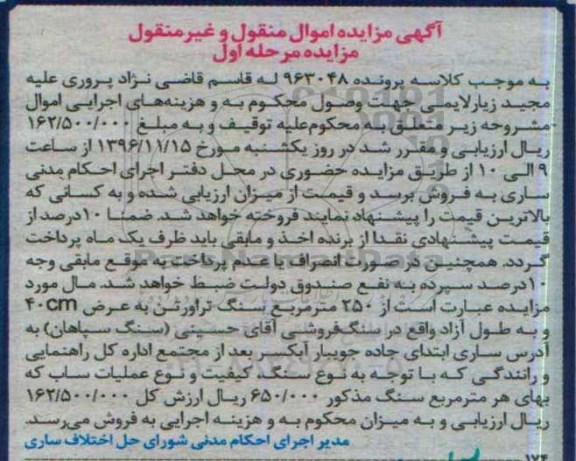 آگهی مزایده اموال منقول و غیر منقول
مزایده مرحله اول
به موجب کلاسه پرونده ۹۶۳۰۴۸ له قاسم قاضی نژاد پروری علیه
مجید زیارلایمی جهت وصول محکوم به و هزینه‌های اجرایی اموال
مشروحه زیر متعلق به محکوم‌علیه توقیف و به مبلغ ۱۶۲/۵۰۰/۰۰۰
ریال ارزیابی و مقرر شد در روز یکشنبه مورخ ۱۳۹۶/۱۱/۱۵ از ساعت
۹ الی ۱۰ از طریق مزایده حضوری در محل دفتر اجرای احکام مدنی
ساری به فروش برسد و قیمت از میزان ارزیابی شده و به کسانی که
بالاترین قیمت را پیشنهاد نمایند فروخته خواهد شد. ضمنا ۱۰درصد از
قیمت پیشنهادی نقدا از برنده اخذ و مابقی باید ظرف یک ماه پرداخت
گردد. همچنین در صورت انصراف یا عدم پرداخت به موقع مابقی وجه
۱۰درصد سپرده به نفع صندوق دولت ضبط خواهد شد. مال مورد
مزایده عبارت است از ۲۵۰ مترمربع سنگ تراورتن به عرض ۴۰cm
و به طول آزاد واقع در سنگ‌فروشی آقای حسینی (سنگ سپاهان) به
آدرس ساری ابتدای جاده جویبار آبکسر بعد از مجتمع اداره کل راهنمایی
و رانندگی که با توجه به نوع سنگ، کیفیت و نوع عملیات ساب که
بهای هر مترمربع سنگ مذکور ۶۵۰/۰۰۰ ریال ارزش کل ۱۶۲/۵۰۰/۰۰۰
ریال ارزیابی و به میزان محکوم به و هزینه اجرایی به فروش می‌رسد.
مدیر اجرای احکام مدنی شورای حل اختلاف ساری
۱۷۴